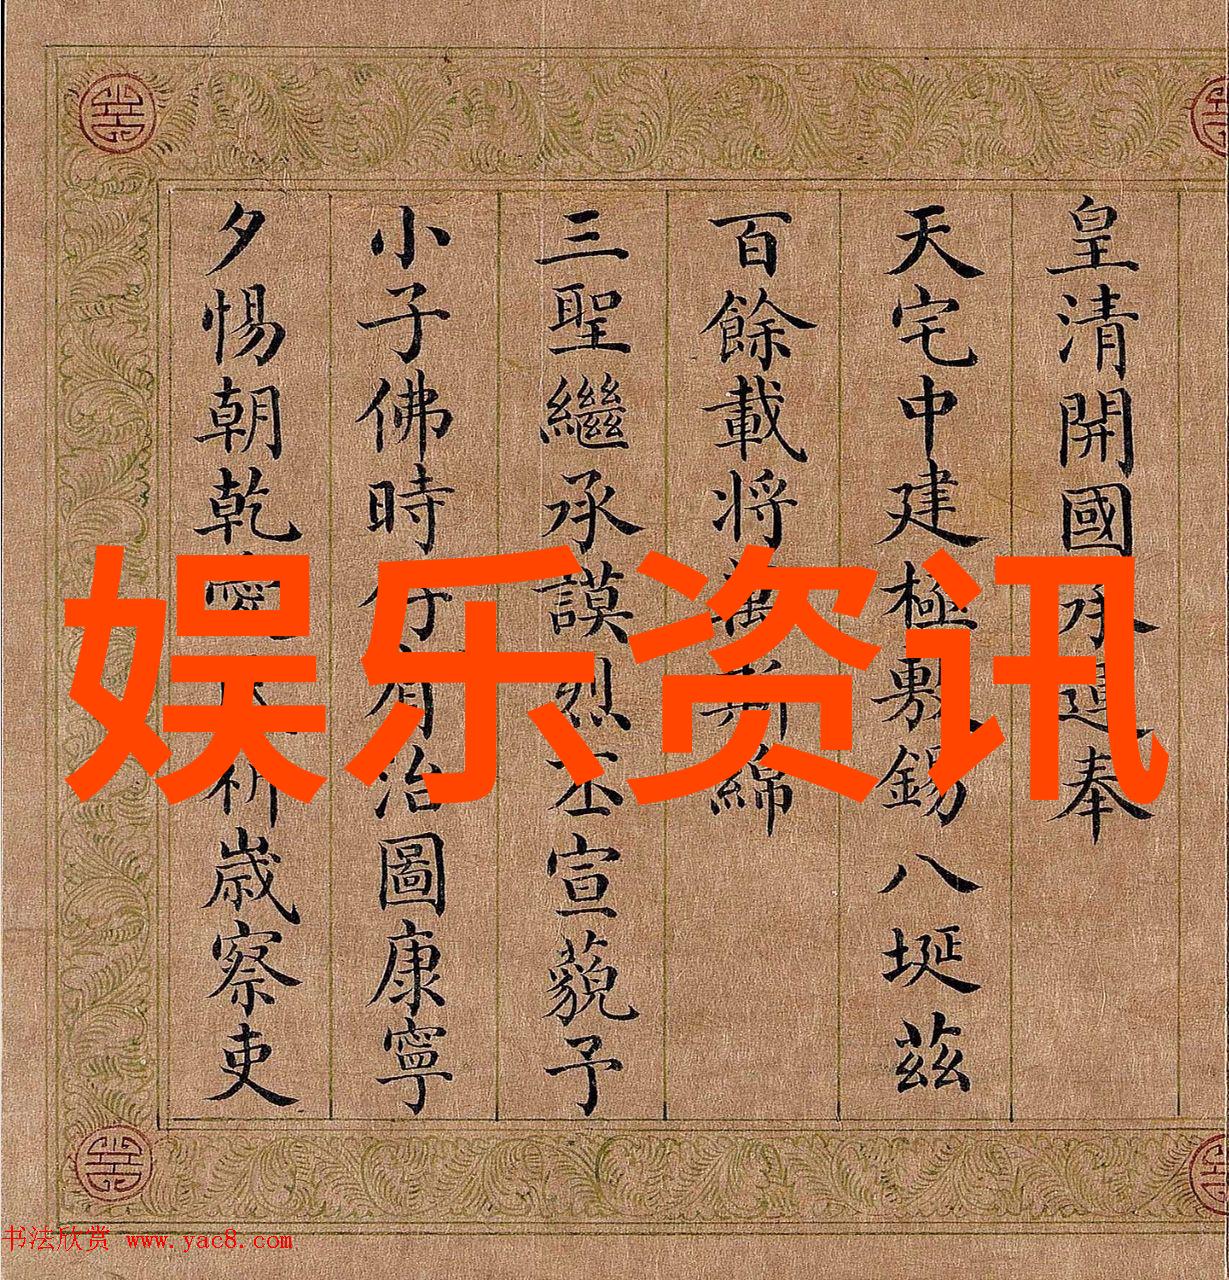 皇清開國承運奉
天宅中建極敷錫八埏茲
百餘載將萬斯綿
三聖繼承謨烈丕宣藐予
小子佛時仔肩治圖康寧
夕惕朝乾祈歲察吏
娱乐资讯
书法欣赏 www.yac8.com